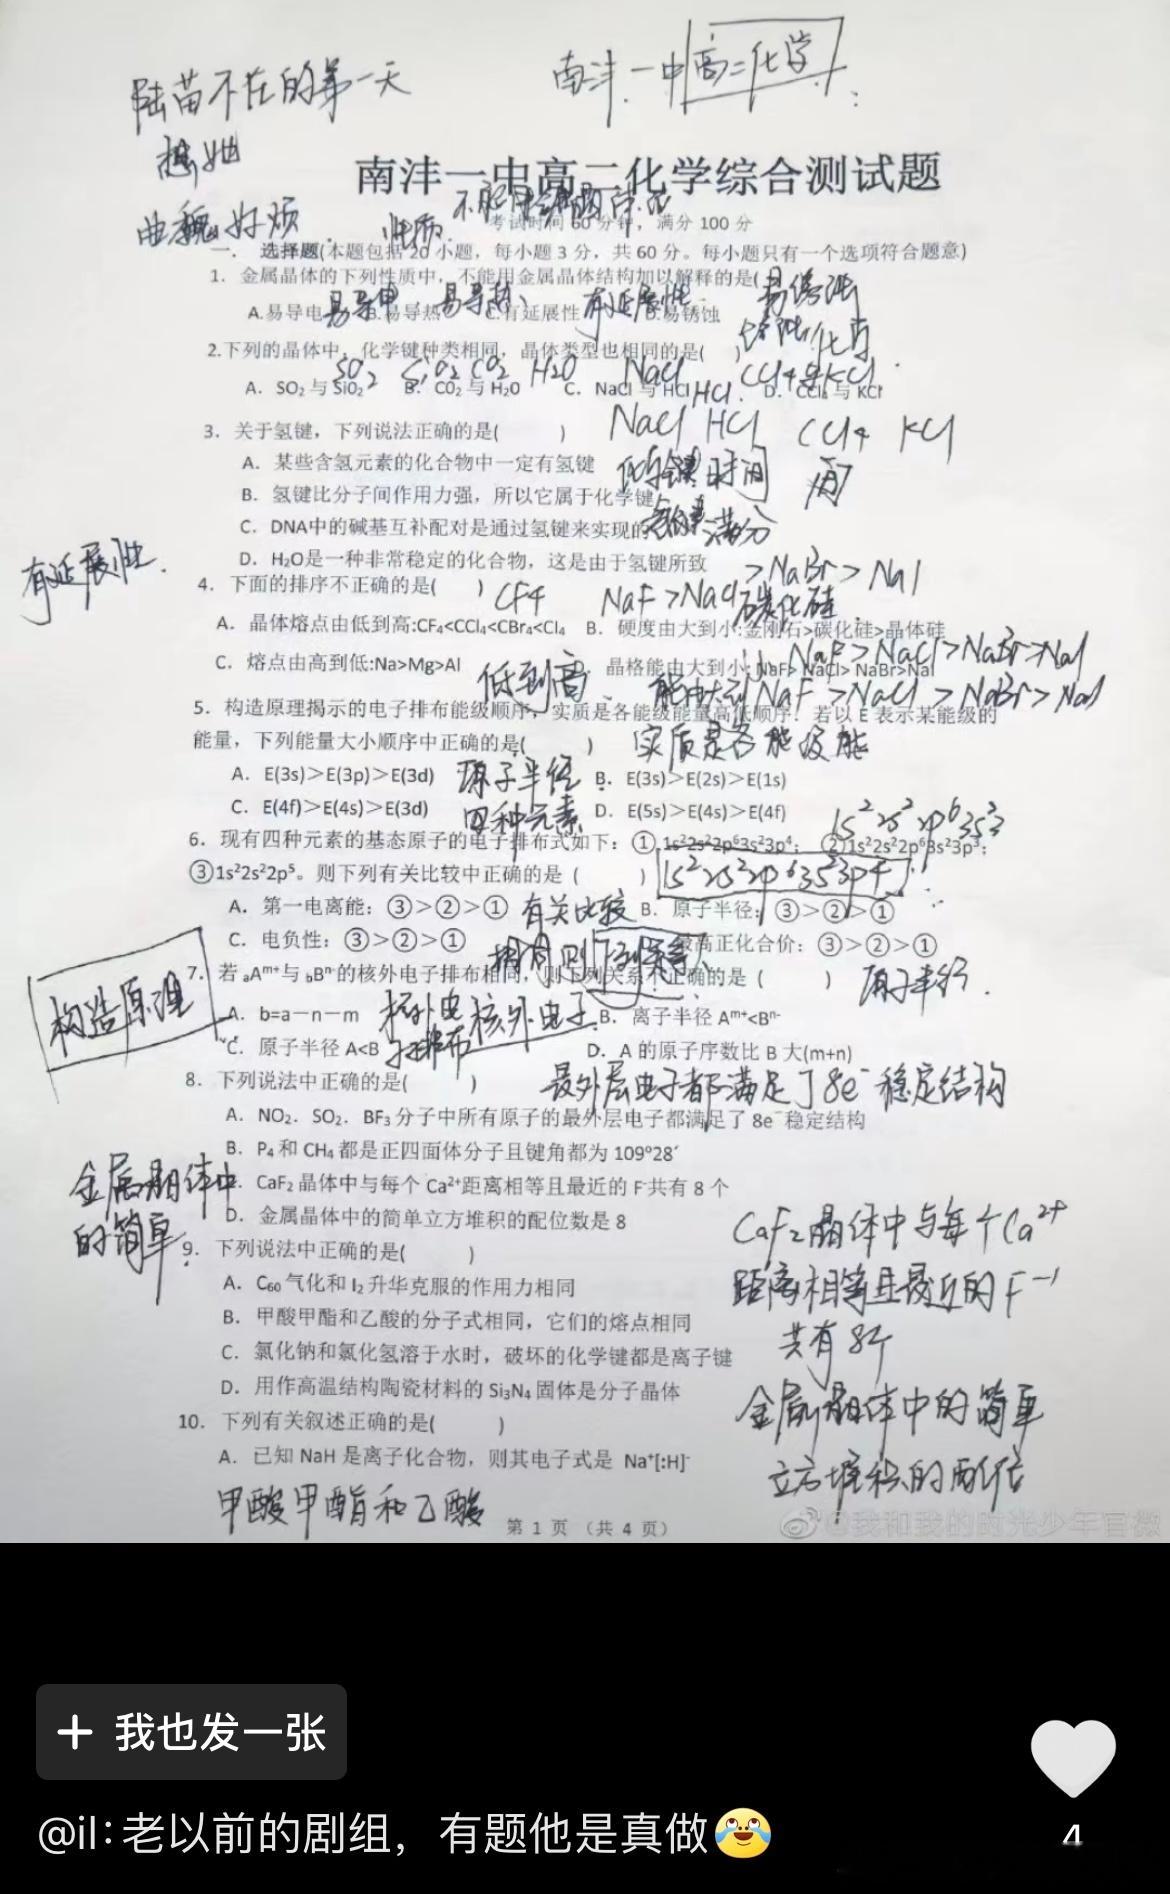 陆苗不在的第一天
南沣一中高二化学
想她
南沣一中高二化学综合测试题
曲魏好烦
性质
考试时间 60 分钟，满分 100 分
一． 选择题(本题包括 20 小题，每小题 3 分，共 60 分。每小题只有一个选项符合题意)
1．金属晶体的下列性质中，不能用金属晶体结构加以解释的是(
易导电 易导热、 有延展性 易锈蚀
A.易导电 B.易导热 C.有延展性 D.易锈蚀
2.下列的晶体中，化学键种类相同，晶体类型也相同的是( )
SO2 SiO2 CO2 H2O NaCl CCl4与KCl
A．SO₂与SiO₂ B．CO₂与 H₂O C．NaCl 与 HCl D．CCl₄ 与 KCl
HCl
3．关于氢键，下列说法正确的是( )
NaCl HCl CCl4 KCl
A．某些含氢元素的化合物中一定有氢键
B．氢键比分子间作用力强，所以它属于化学键
C．DNA中的碱基互补配对是通过氢键来实现的
满分
D．H₂O是一种非常稳定的化合物，这是由于氢键所致
有延展性．
>NaBr>NaI
4．下面的排序不正确的是( )
CF4 NaF>NaCl 碳化硅
A．晶体熔点由低到高:CF₄<CCl₄<CBr₄<Cl₄ B．硬度由大到小:金刚石>碳化硅>晶体硅
NaF>NaCl>NaBr>NaI
C．熔点由高到低:Na>Mg>Al 晶格能由大到小: NaF> NaCl> NaBr>NaI
低到高． 能由大到 NaF>NaCl>NaBr>NaI
5．构造原理揭示的电子排布能级顺序，实质是各能级能量高低顺序．若以 E 表示某能级的
能量，下列能量大小顺序中正确的是( )
实质是各能级能
A．E(3s)＞E(3p)＞E(3d) B．E(3s)＞E(2s)＞E(1s)
原子半径
C．E(4f)＞E(4s)＞E(3d) D．E(5s)＞E(4s)＞E(4f)
四种元素
1s²2s²2p⁶3s²
6．现有四种元素的基态原子的电子排布式如下：①1s²2s²2p⁶3s²3p⁴；②1s²2s²2p⁶3s²3p³；
③1s²2s²2p⁵。则下列有关比较中正确的是（ ）
1s²2s²2p⁶3s²3p4
A．第一电离能：③＞②＞① B．原子半径：③＞②＞①
有关比较
C．电负性：③＞②＞① 最高正化合价：③＞②＞①
相同则下列关系
7．若 ₐAᵐ⁺与 ᵦBⁿ⁻的核外电子排布相同，则下列关系不正确的是（ ）
原子半径．
构造原理
A．b=a－n－m B．离子半径 Aᵐ⁺<Bⁿ⁻
核外电子排布 核外电子
C．原子半径 A<B D．A 的原子序数比 B 大(m+n)
8．下列说法中正确的是( )
最外层电子都满足了8e⁻稳定结构
A．NO₂．SO₂．BF₃ 分子中所有原子的最外层电子都满足了 8e⁻稳定结构
B．P₄ 和 CH₄ 都是正四面体分子且键角都为 109º28′
金属晶体中
的简单
CaF₂ 晶体中与每个 Ca²⁺距离相等且最近的 F⁻共有 8 个
D．金属晶体中的简单立方堆积的配位数是 8
CaF2晶体中与每个Ca²⁺
距离相等且最近的F⁻¹
共有8个
9．下列说法中正确的是( )
A．C₆₀ 气化和 I₂ 升华克服的作用力相同
B．甲酸甲酯和乙酸的分子式相同，它们的熔点相同
C．氯化钠和氯化氢溶于水时，破坏的化学键都是离子键
D．用作高温结构陶瓷材料的 Si₃N₄ 固体是分子晶体
金属晶体中的简单
立方堆积的配位
10．下列有关叙述正确的是( )
A．已知 NaH 是离子化合物，则其电子式是 Na⁺[:H]⁻
甲酸甲酯和乙酸
第 1 页 （共 4 页）
@我和我的时光少年官微
+ 我也发一张
@il：老以前的剧组，有题他是真做😂
4